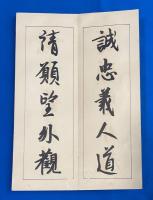 誠忠義人道
清願望外觀